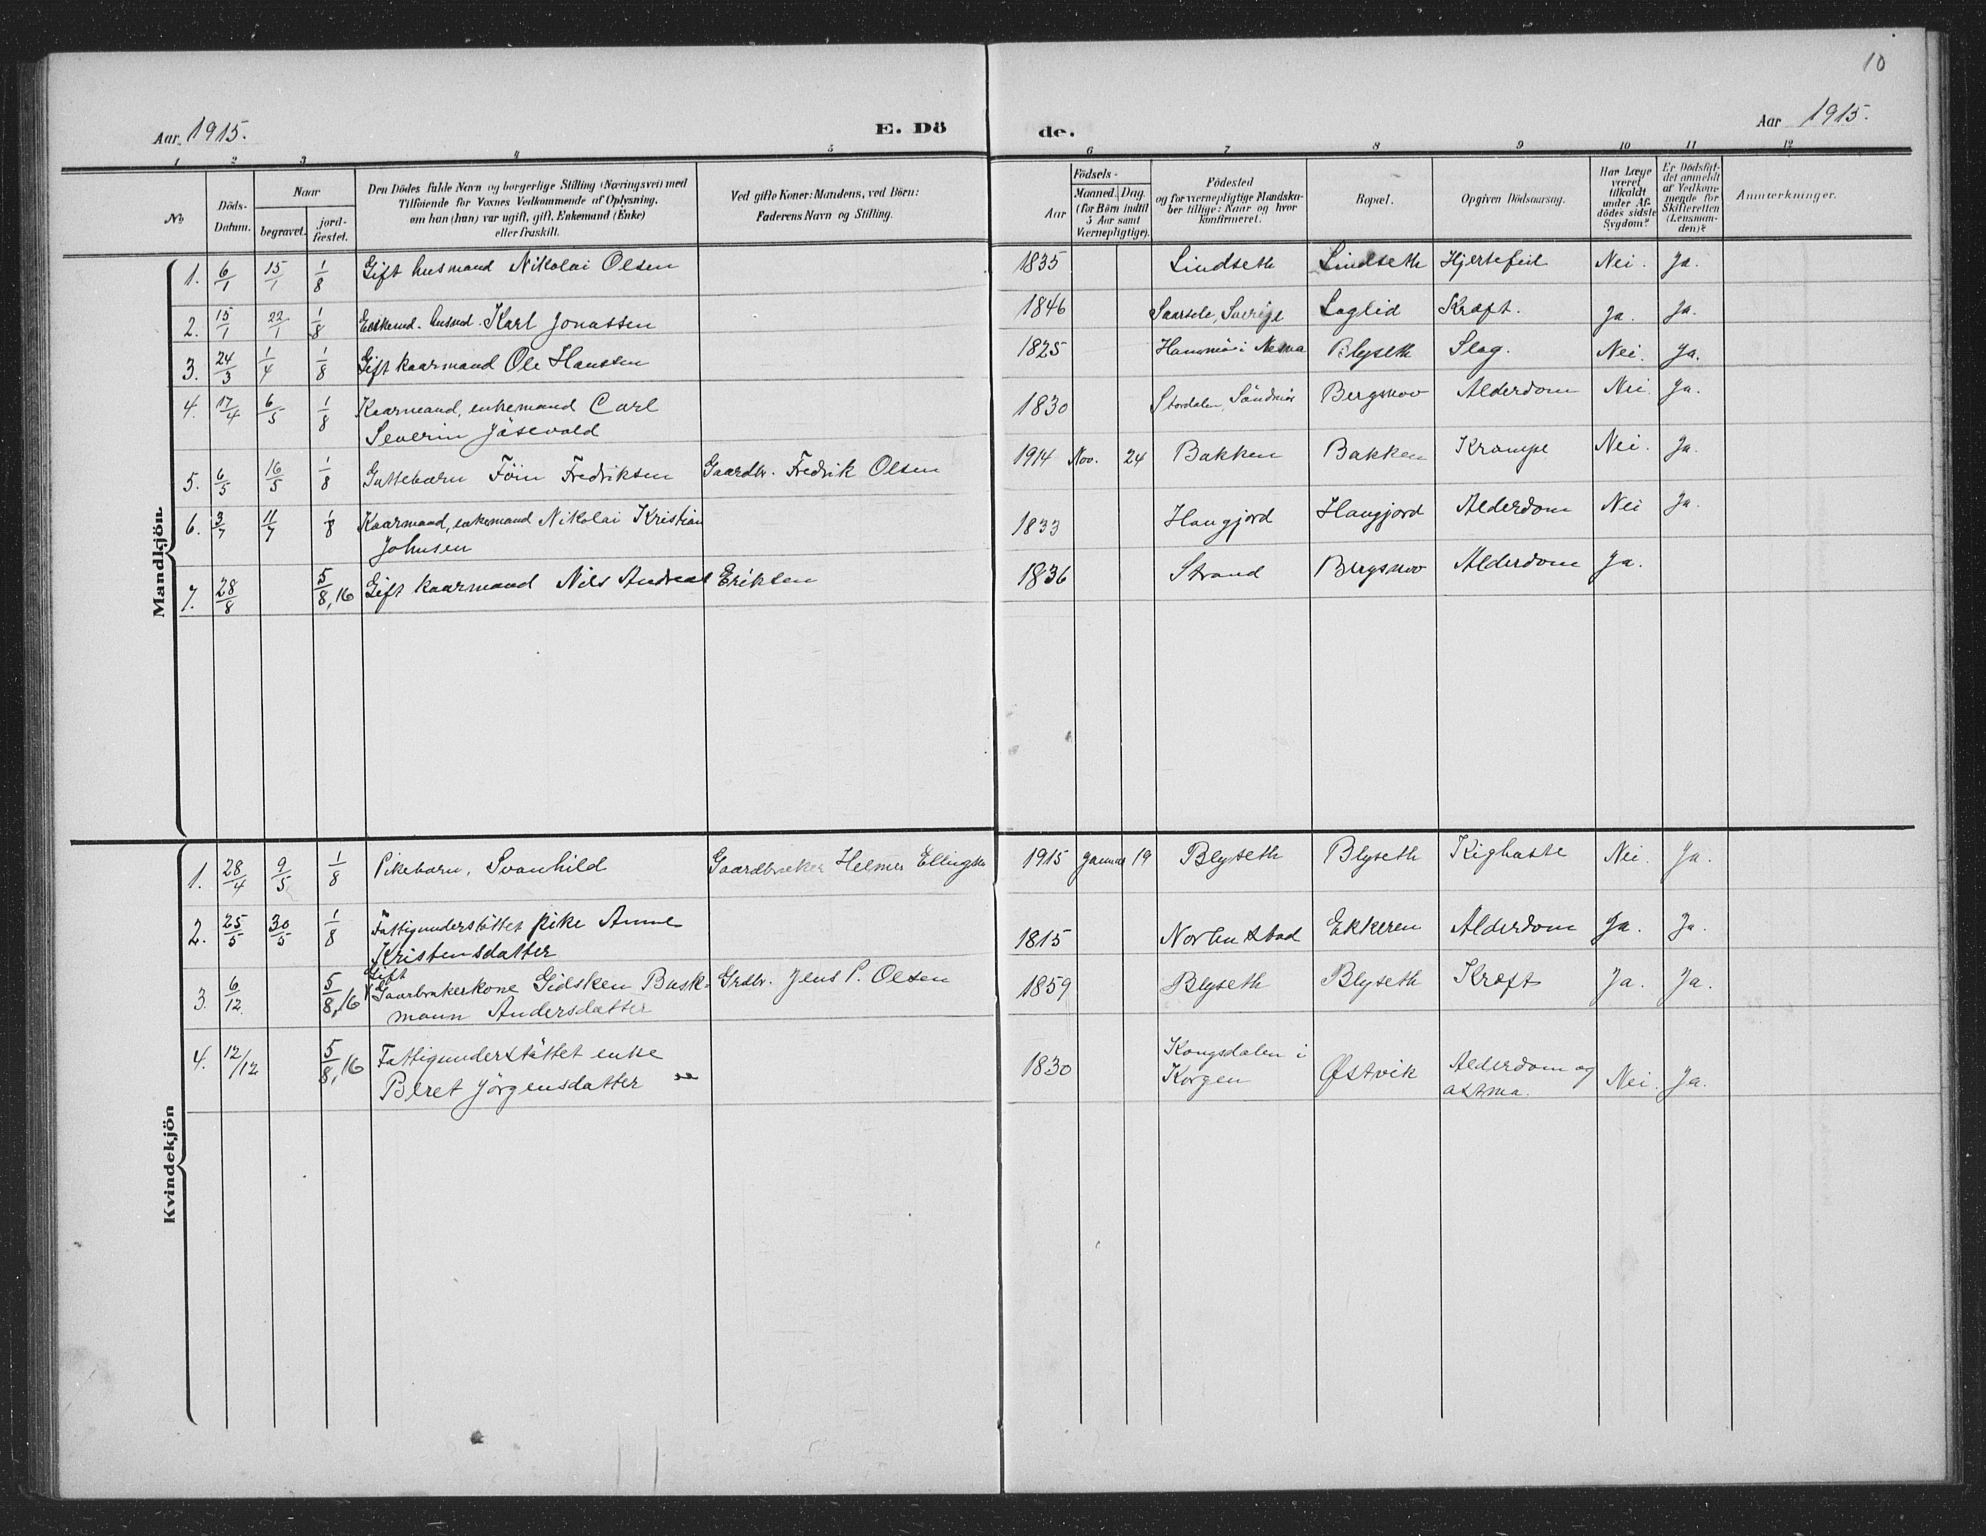 10
Aar 1915.
E. Dö
de.
Aar 1915.
1 2 3 4 5 6 7 8 9 10 11 12
No
Döds-
Datum.
Naar
begravet.
jord-
fæstet.
Den Dödes fulde Navn og borgerlige Stilling (Næringsvei) med
Tilföiende for Voxnes Vedkommende af Oplysning,
om han (hun) var ugift, gift, Enkemand (Enke)
eller fraskilt.
Ved gifte Koner: Mandens, ved Börn:
Faderens Navn og Stilling.
Födsels-
Aar
Maaned. Dag.
(for Börn indtil
5 Aar samt
Værnepligtige).
Födested
og for værnepligtige Mandska-
ber tillige: Naar og hvor
konfirmeret.
Bopæl.
Opgiven Dödsaarsag.
Har Læge
været
tilkaldt
under Af-
dödes sidste
Sygdom?
Er Dödsfal-
det anmeldt
af Vedkom-
mende for
Skifteretten
(Lensman-
den)?
Anmærkninger.
Mandkjön.
1. 6/1 15/1 1/8 Gift husmand Nikolai Olsen 1835 Lindseth Lindseth Hjertefeil Nei. Ja.
2. 15/1 22/1 1/8 Karl Jonassen 1846 Saarsele, Sverige Laglid Kræft. Ja. Ja.
3. 24/3 1/4 1/8 Gift kaarmand Ole Hansen 1825 i Nesna Blyseth Slag. Nei. Ja.
4. 17/4 6/5 1/8 Kaarmand, enkemand Carl
Severin Jösevold 1830 Stordalen, Söndmör Bergsnov Alderdom Nei. Ja.
5. 6/5 16/5 1/8 Guttebarn Föin Fredriksen Gaardbr. Fredrik Olsen 1914 Nov. 24 Bakken Bakken Krampe Nei. Ja.
6. 3/7 11/7 1/8 Kaarmand, enkemand Nikolai Kristian
Johnsen 1833 Haugjord Haugjord Alderdom Nei Ja.
7. 28/8 5/8, 16 Gift kaarmand Nils Andreas Eriksen 1836 Strand Bergsnov Alderdom Ja.
Kvindekjön
1. 28/4 9/5 1/8 Pikebarn, Svanhild Gaardbruker Helmer Ellingsen 1915 Januar 19 Blyseth Blyseth Kighoste Nei. Ja.
2. 25/5 30/5 1/8 Fattigunderstöttet pike Anne
Kristensdatter 1815 Ekkeren Alderdom Ja. Ja.
3. 6/12 5/8, 16 Gift
Gaarbrukerkone Gidsken Bask-
mann Andersdatter Grdbr. Jens P. Olsen 1859 Blyseth Blyseth Kræft Ja. Ja.
4. 12/12 5/8, 16 Fattigunderstöttet enke
Beret Jörgensdatter 1830 Kongsdalen i
Korgen Østvik Alderdom og
astma. Nei. Ja.